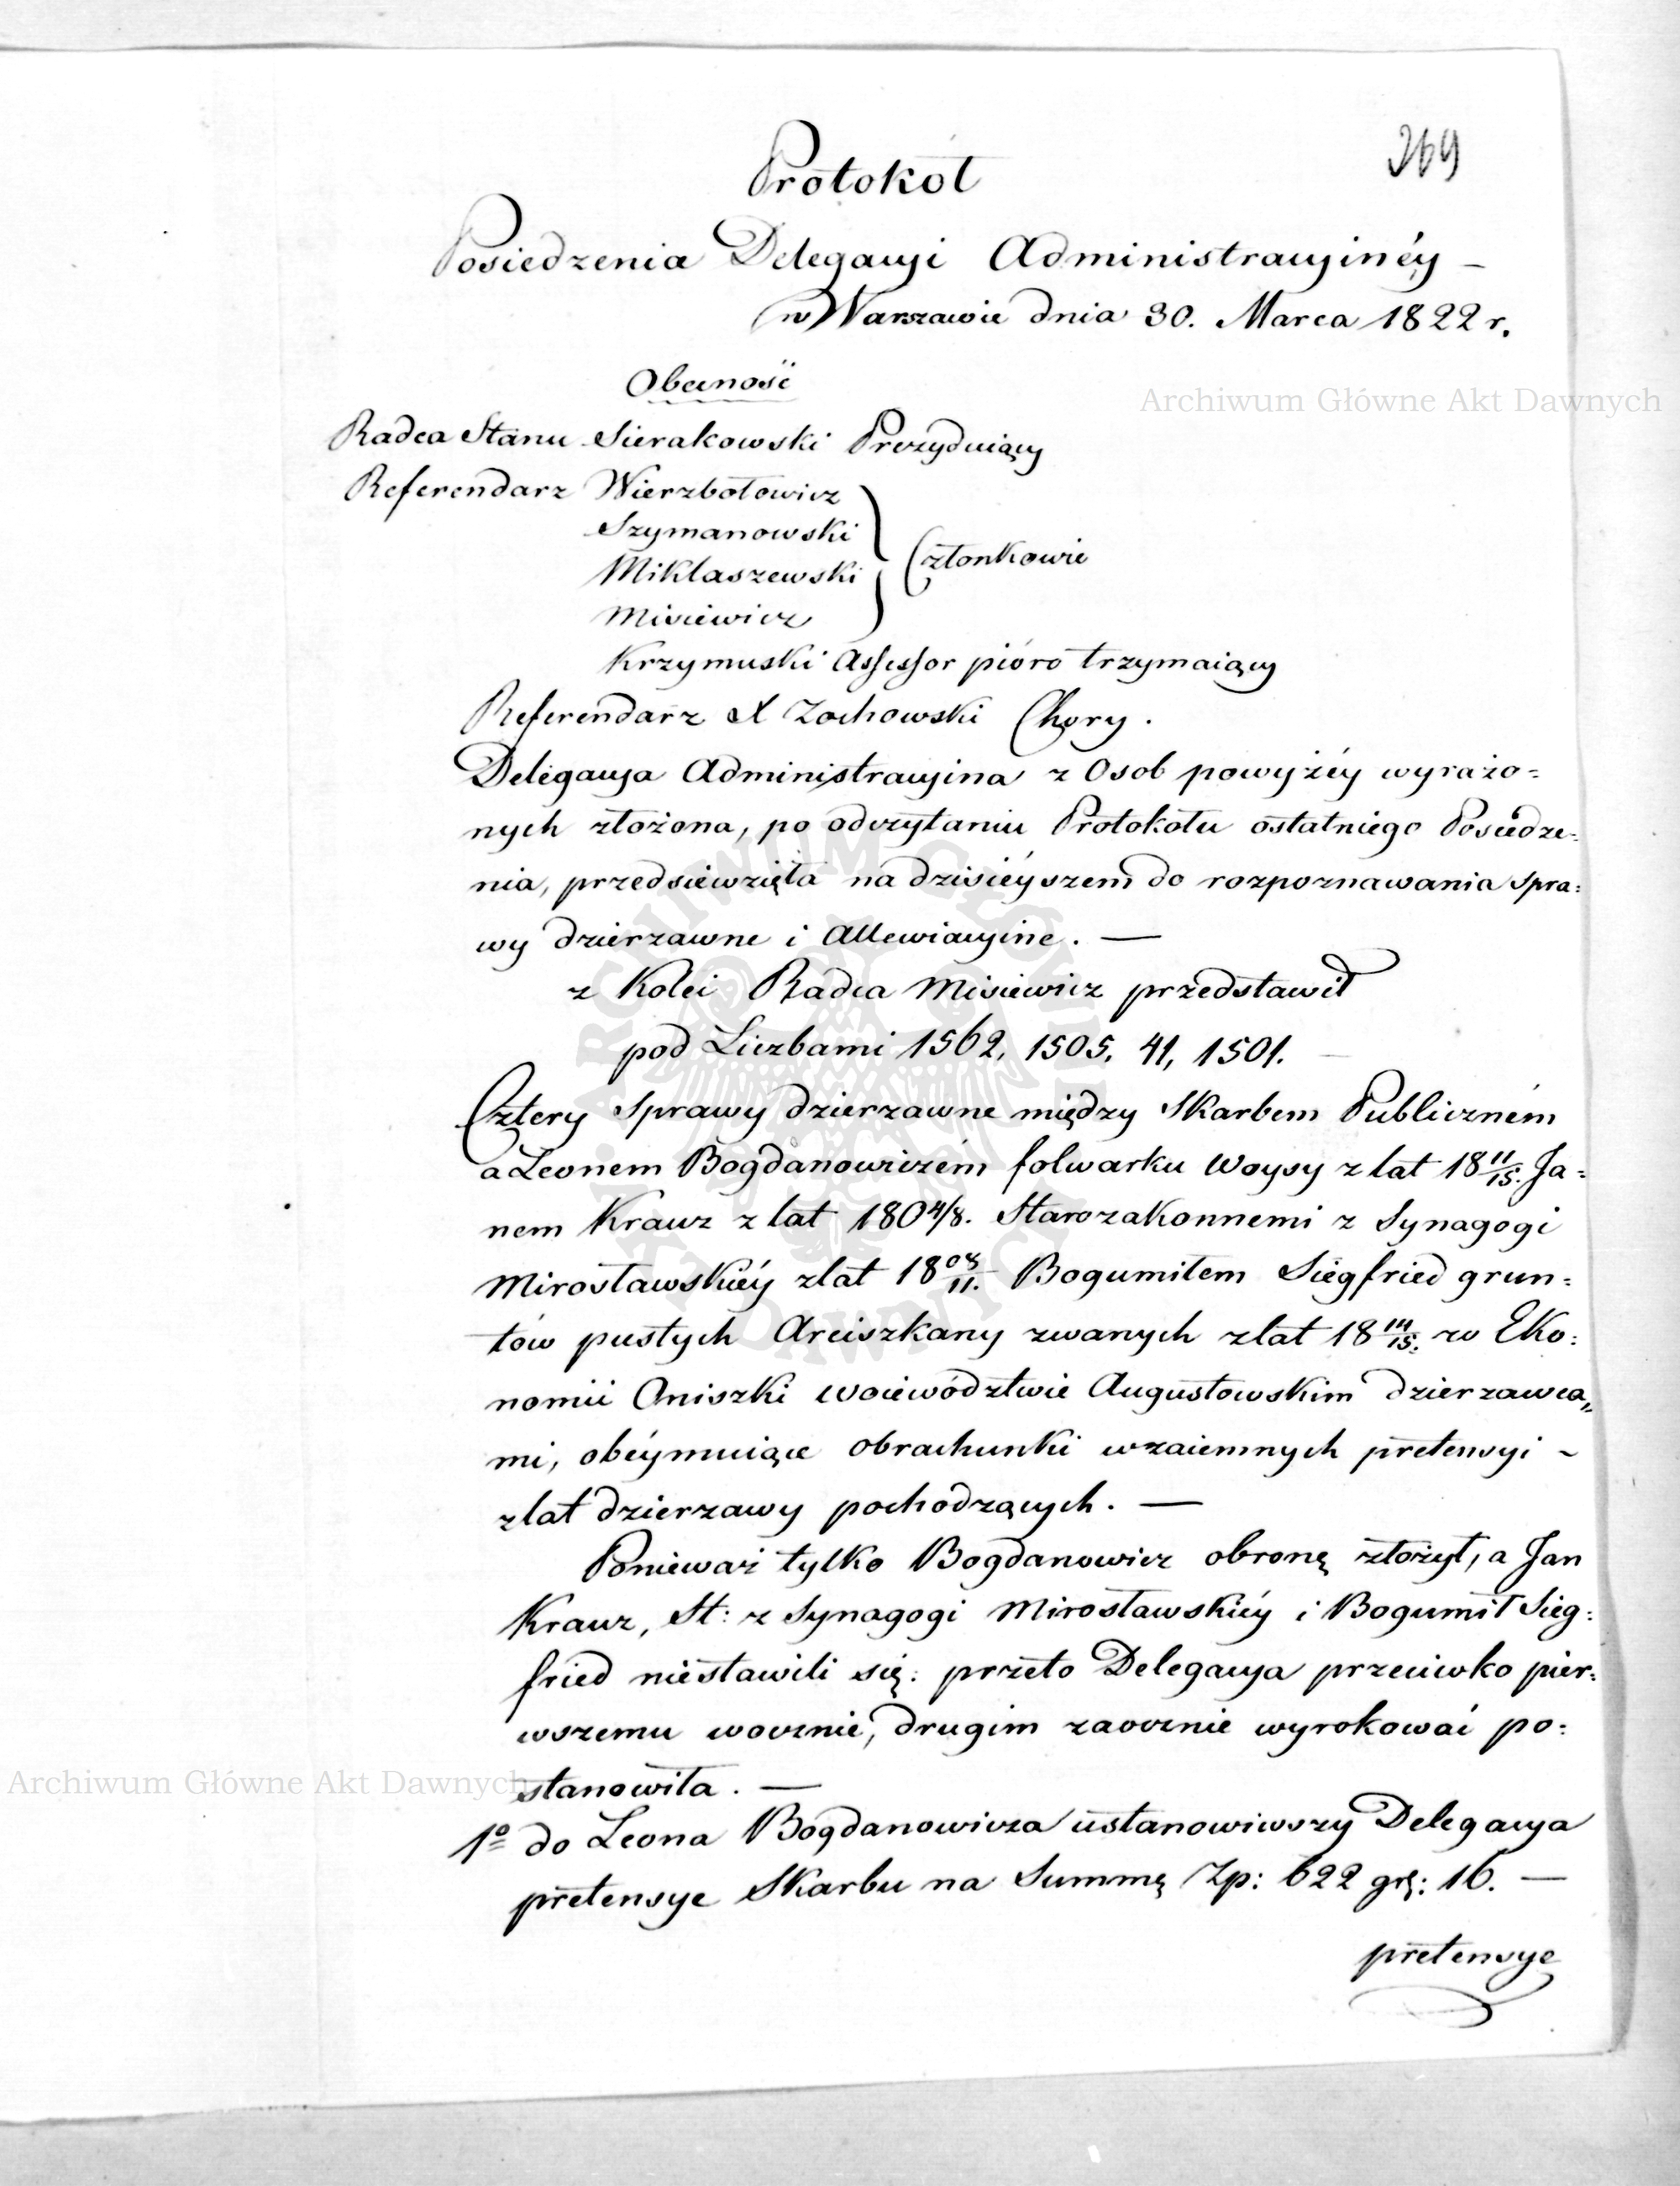 369
Protokół
Posiedzenia Delegacyi Administracyinéy –
w Warszawie dnia 30. Marca 1822 r.
Obecność
Archiwum Główne Akt Dawnych
Radca Stanu Sierakowski Prezyduiący
Referendarz Wierzbołowicz
Szymanowski
Członkowie
Miklaszewski
Misiewicz
Krzymuski Assessor pióro trzymaiący
Referendarz X Zochowski Chory.
Delegacya Administracyina z Osob powyżéy wyrażo=
nych złożona, po odczytaniu Protokołu ostatniego Posiedze=
nia, przedsiewzięła na dzisiéyszem do rozpoznawania spra=
wy dzierzawne i Allewiacyine. —
z Kolei Radca Misiewicz przedstawił
pod Liczbami 1562, 1505, 41, 1501.
Cztery sprawy dzierzawne między Skarbem Publiczném
a Leonem Bogdanowiczém folwarku Woysy z lat 18 11/15. Ja=
nem Krauz z lat 180 4/8. Starozakonnemi z Synagogi
Mirosławskiéy z lat 18 08/11. Bogumiłem Siegfried grun=
tów pustych Arciszkany zwanych z lat 18 14/15. w Eko=
nomii Oniszki Woiewództwie Augustowskim dzierzawca„
mi, obéymuiące obrachunki wzaiemnych pretensyi ~
z lat dzierzawy pochodzących. —
Ponieważ tylko Bogdanowicz obronę złożył, a Jan
Krauz, St: z Synagogi Mirosławskiéy i Bogumił Sieg=
fried niestawili się: przeto Delegacya przeciwko pier=
wszemu wocznie, drugim zaocznie wyrokować po=
stanowiła. —
Archiwum Główne Akt Dawnych
1º do Leona Bogdanowicza ustanowiwszy Delegacya
pretensye Skarbu na Summę Zp: 622 grę: 16. —
pretensye